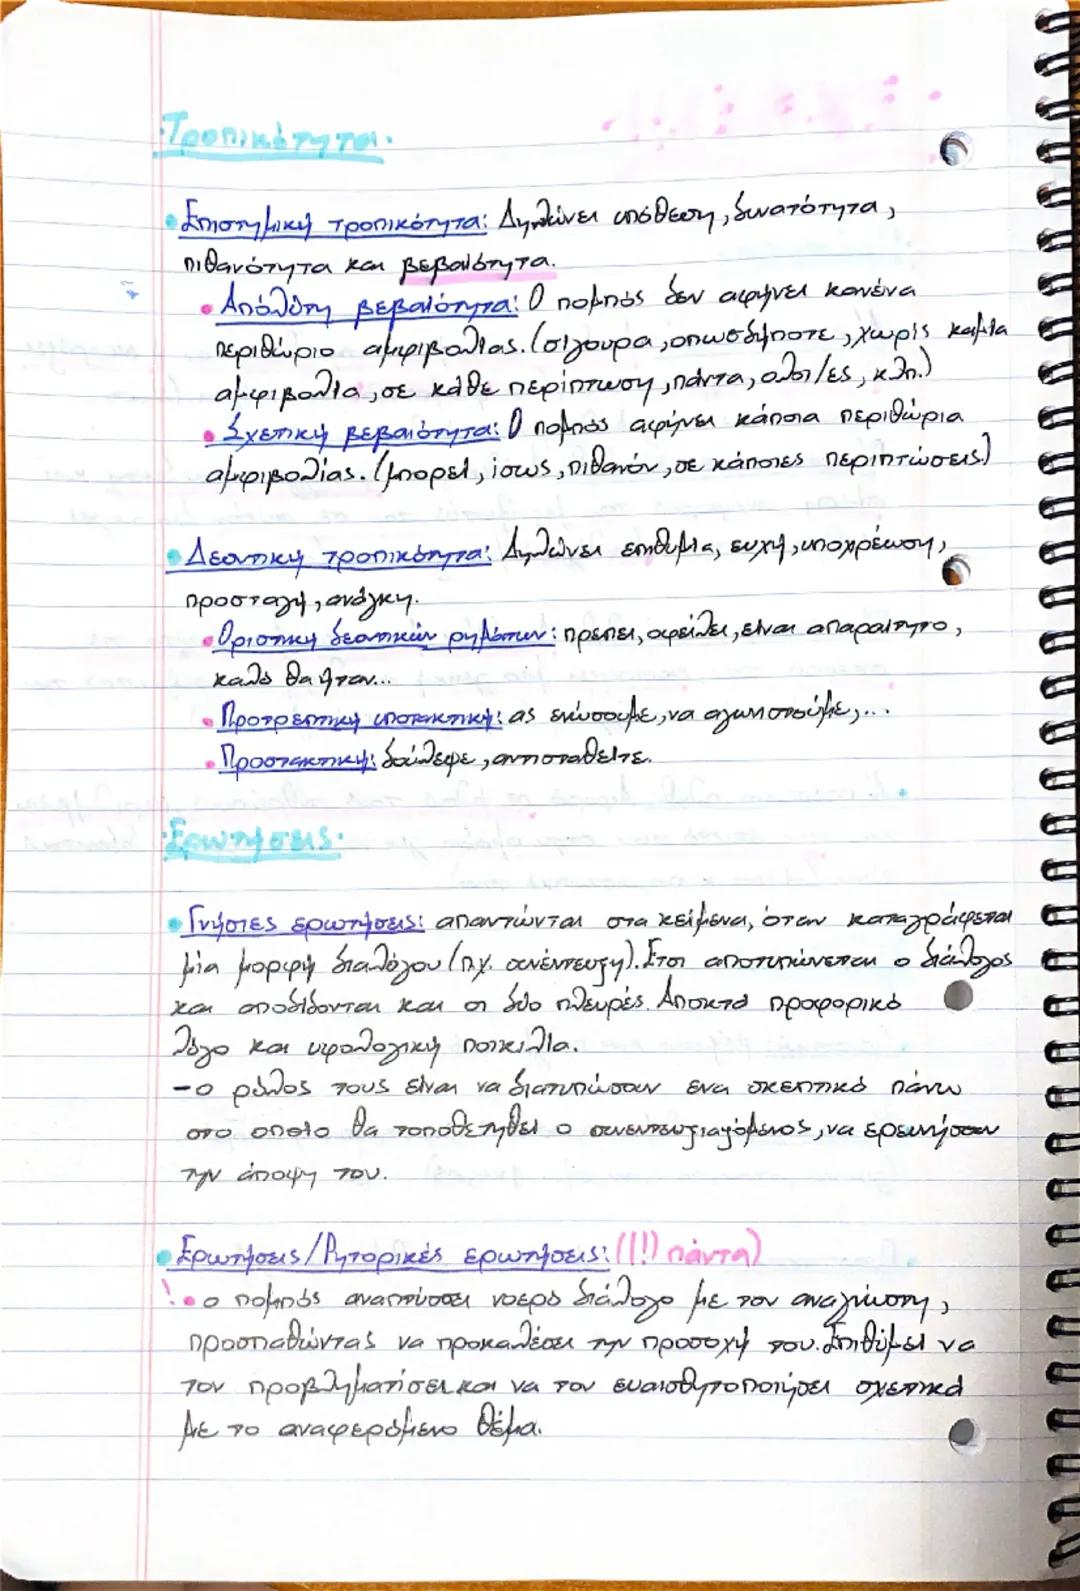 ·Τροπικότητα·
• Επιστημική τροπικότητα: Δηλώνει υπόθεση, δυνατότητα,
πιθανότητα και βεβαιότητα.
• Απόλυτη βεβαιότητα: Ο πομπός δεν αφήνει κανένα
περιθώριο αμφιβολίας. (σίγουρα, οπωσδήποτε, χωρίς καμία
αμφιβολία, σε κάθε περίπτωση, πάντα, όλοι/ες, κλπ.)
• Σχετική βεβαιότητα: Ο πομπός αφήνει κάποια περιθώρια
αμφιβολίας. (μπορεί, ίσως, πιθανόν, σε κάποιες περιπτώσεις)
• Δεοντική τροπικότητα: Δηλώνει επιθυμία, ευχή, υποχρέωση,
προσταγή, ανάγκη.
• Οριστική δεοντικών ρημάτων: πρέπει, οφείλει, είναι απαραίτητο,
καλό θα ήταν...
• Προτρεπτική υποτακτική: ας ενώσουμε, να αγωνιστούμε,...
• Προστακτική: δούλεψε, αντισταθείτε.
·Ερωτήσεις·
• Γνήσιες ερωτήσεις: απαντώνται στα κείμενα, όταν καταγράφεται
μία μορφή διαλόγου (π.χ. συνέντευξη). Έτσι αποτυπώνεται ο διάλογος
και αποδίδονται και οι δύο πλευρές. Αποκτά προφορικό
λόγο και υφολογική ποικιλία.
-ο ρόλος τους είναι να διατυπώσουν ένα σκεπτικό πάνω
στο οποίο θα τοποθετηθεί ο συνεντευξιαζόμενος, να ερευνήσουν
την άποψη του.
• Ερωτήσεις/Ρητορικές ερωτήσεις: (!!) πάντα)
! • ο πομπός αναπτύσσει νοερό διάλογο με τον αναγνώστη,
προσπαθώντας να προκαλέσει την προσοχή του. Επιθυμεί να
τον προβληματίσει και να τον ευαισθητοποιήσει σχετικά
με το αναφερόμενο θέμα.